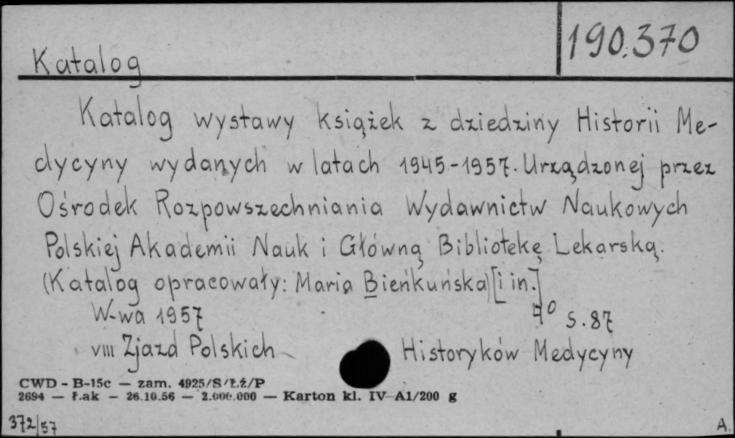 190.370
Katalog
Katalog wystawy książek z dziedziny Historii Me-
dycyny wydanych w latach 1945-1957. Urządzonej przez
Ośrodek Rozpowszechniania Wydawnictw Naukowych
Polskiej Akademii Nauk i Główną Bibliotekę Lekarską.
(Katalog opracowały: Maria Bieńkuńska) [i in.]
W-wa 1957 4° s. 87
VIII Zjazd Polskich Historyków Medycyny
CWD - B-15c — zam. 4925/S/Łż/P
2694 — Łak — 26.10.56 — 2.000.000 — Karton kl. IV A1/200 g
372/57 A.